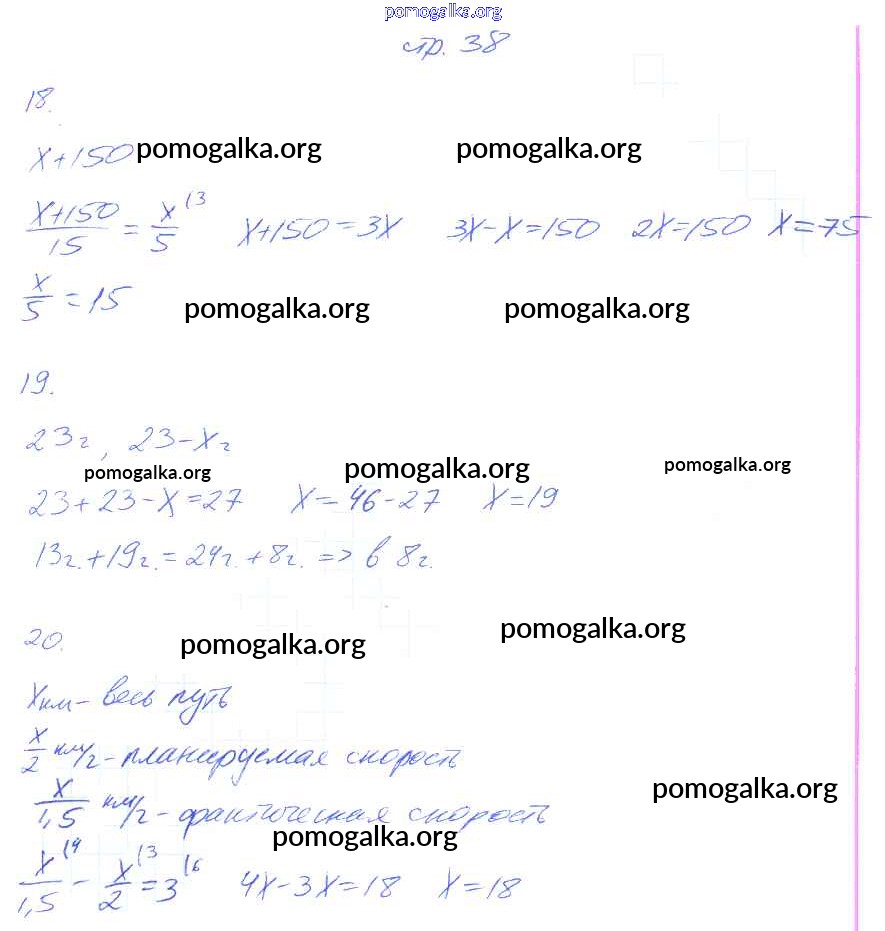 pomogalka.org
стр. 38
18.
x+150 pomogalka.org pomogalka.org
(x+150)/15 = x/5 (3 x+150=3x 3x-x=150 2x=150 x=75
x/5 =15 pomogalka.org pomogalka.org
19.
23г, 23-xг
pomogalka.org pomogalka.org pomogalka.org
23+23-x=27 x=46-27 x=19
13г.+19г.=24г.+8г. => в 8г.
20. pomogalka.org pomogalka.org
xкм- весь путь
x/2 км/г-планируемая скорость
x/1,5 км/г-фактическая скорость pomogalka.org
pomogalka.org
x/1,5 (4 - x/2 (3 =3 (6 4x-3x=18 x=18